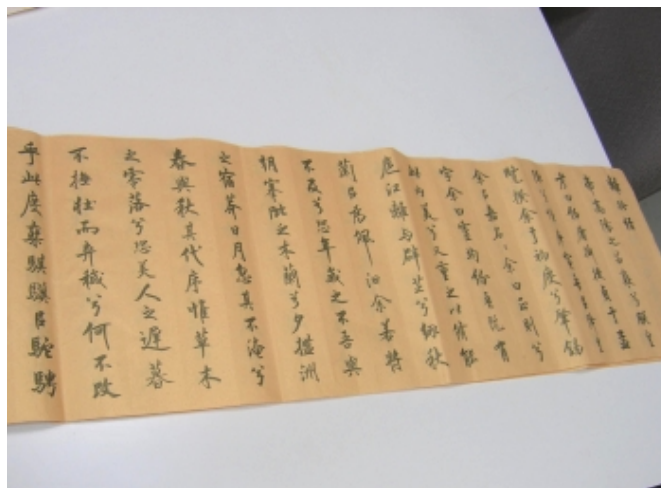 離騷經
帝高陽之苗裔兮朕皇
考曰伯庸攝提貞于孟
覽揆余于初度兮肇錫
余㠯嘉名〻余曰正則兮
字余曰靈均紛吾既有
此內美兮又重之以脩能
扈江離与辟芷兮紉秋
蘭㠯為佩汩余若將
不及兮恐年歲之不吾與
朝搴阰之木蘭兮夕攬洲
之宿莽日月忽其不淹兮
春與秋其代序惟草木
之零落兮恐美人之遲暮
不撫壯而弃穢兮何不改
乎此度椉騏驥㠯馳騁